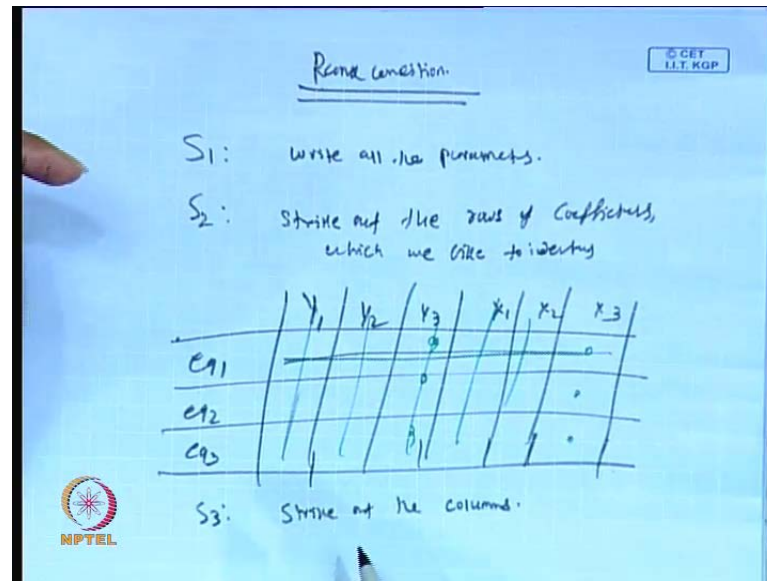 Rank condition.
© CET
I.I.T. KGP
S1: Write all the parameters.
S2: Strike out the rows of Coefficients,
which we like to identify
Y1 Y2 Y3 X1 X2 X3
eq1
eq2
eq3
S3: Strike out the columns.
NPTEL